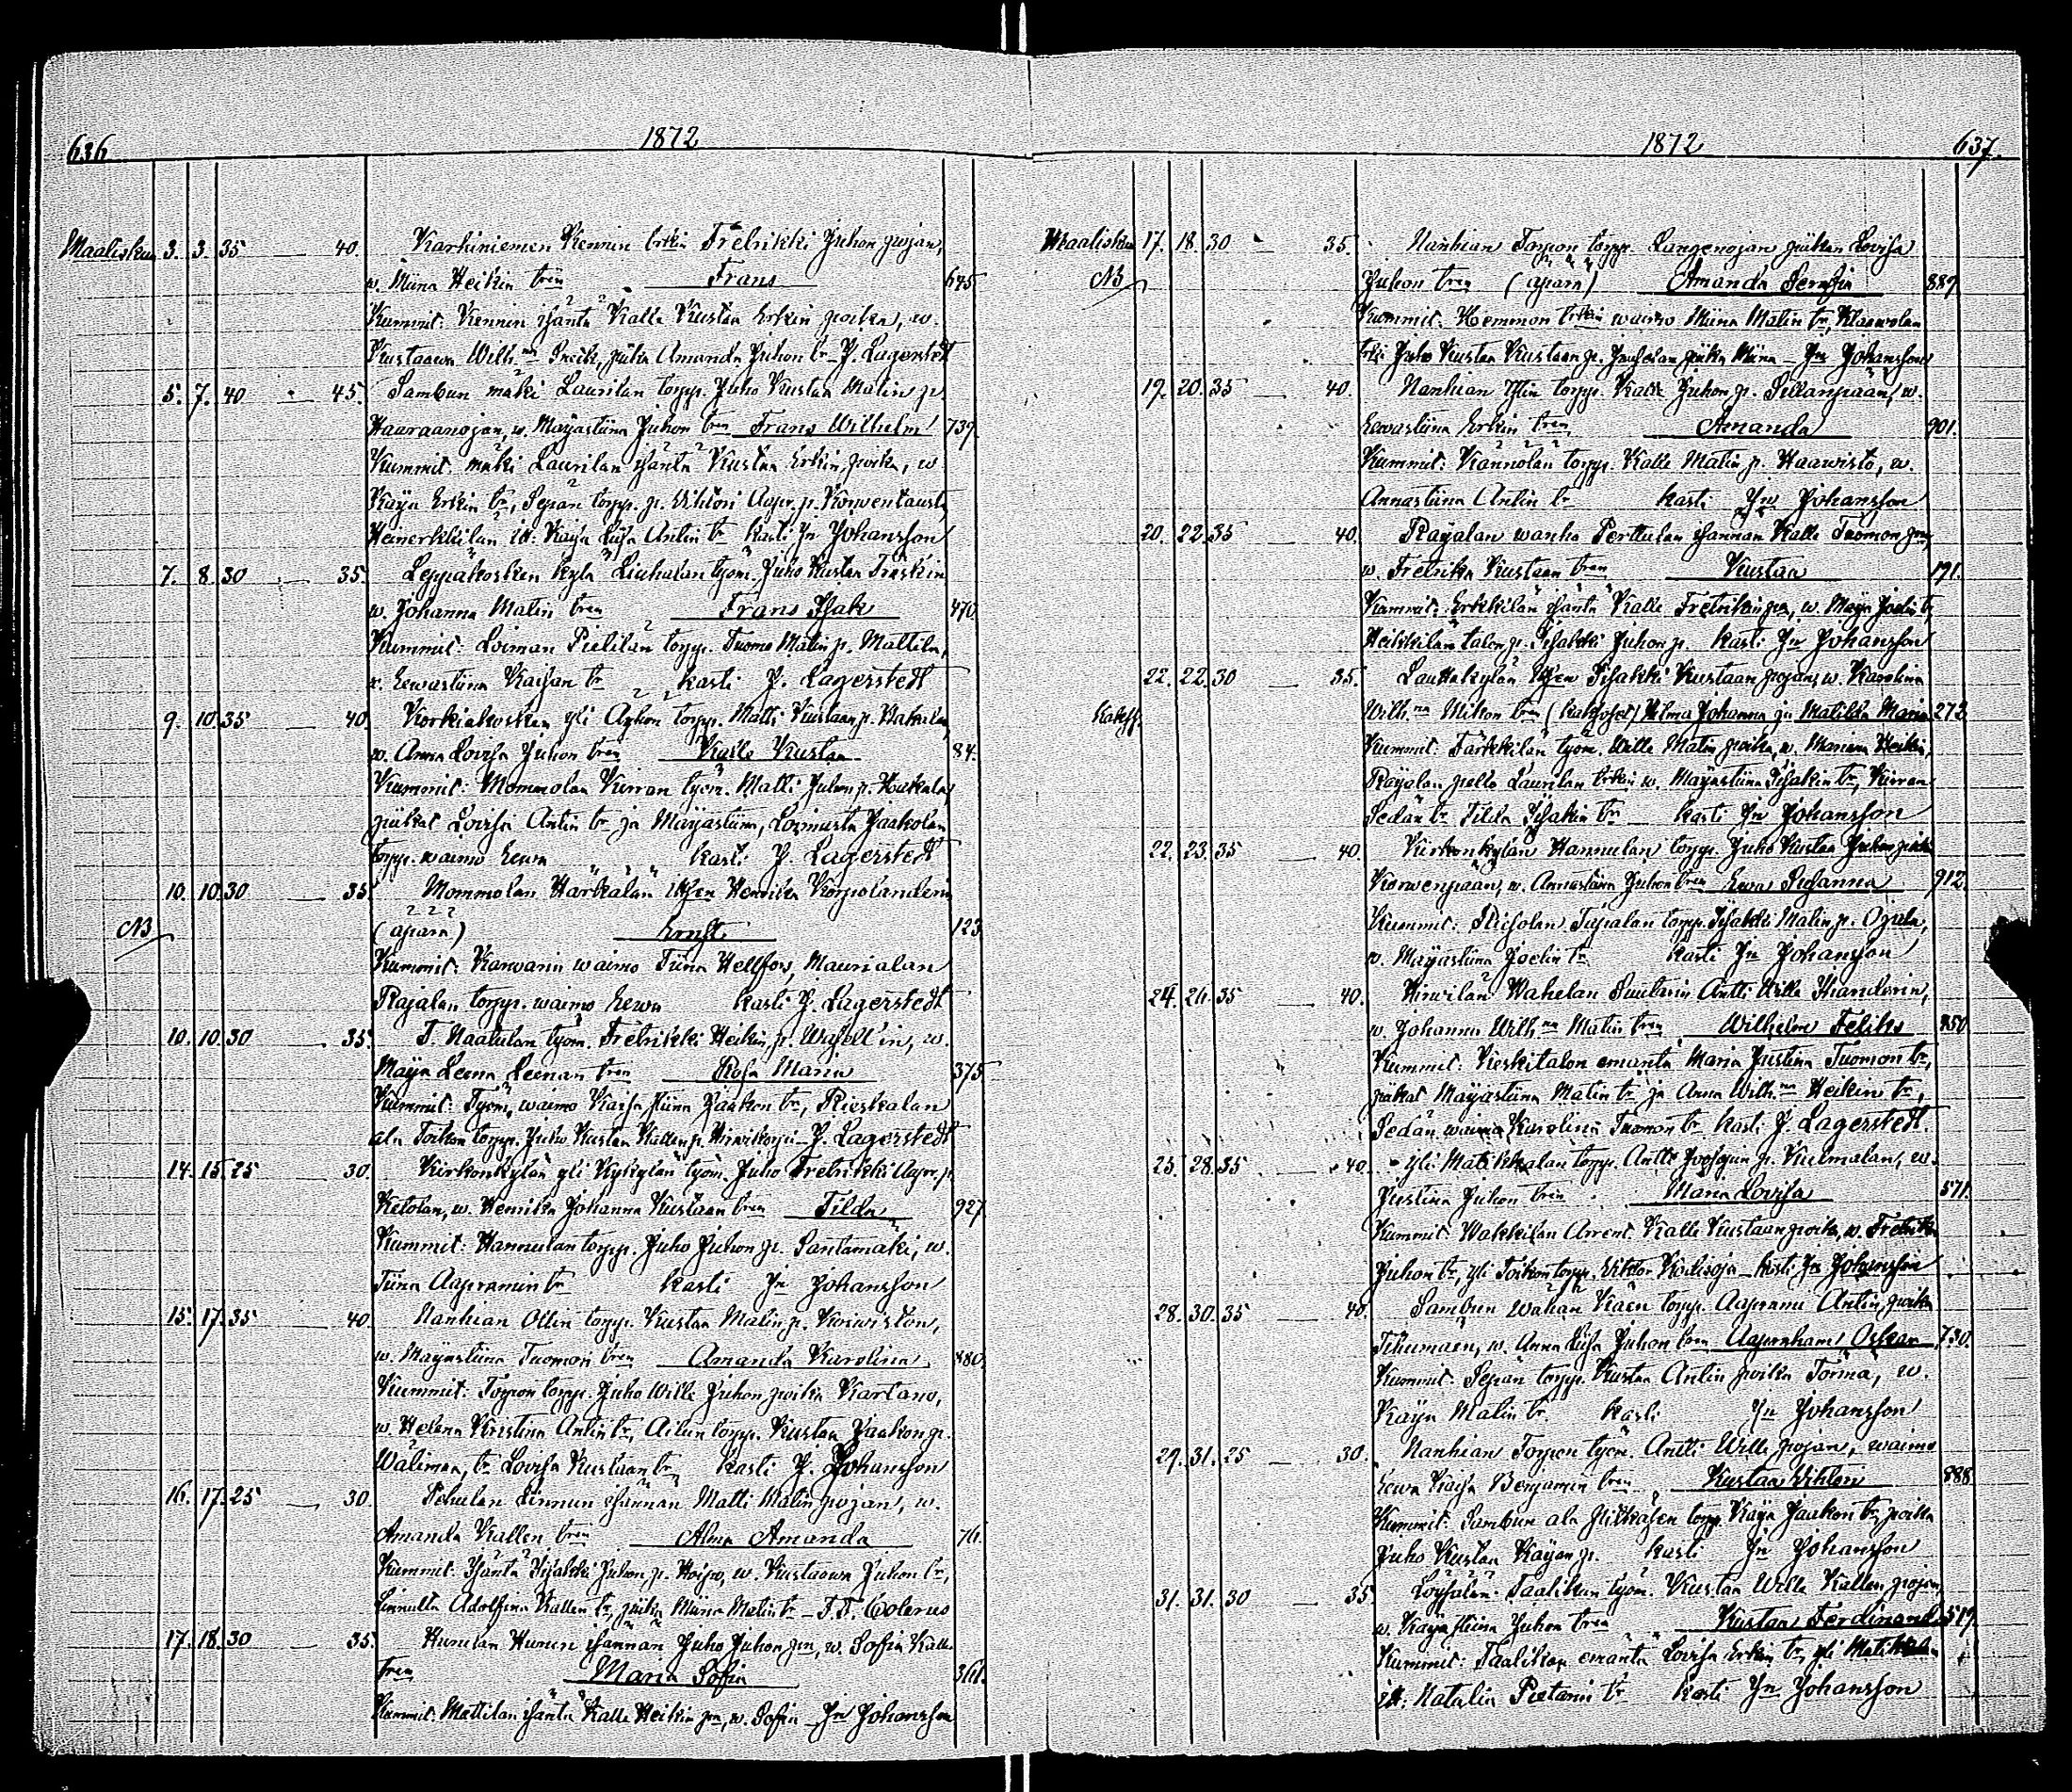 636 1872
Maalisku 3. 3. 35 40. Karhiniemen Kennin Erkin Fretrikki Juhon pojan,
w. Miina Heikin trén Frans 675
Kummit: Kennin isäntä Kalle Kustaa Erkin poika, w.
Kustaawa Wilh.na piika Amanda Juhon tr – J. Lagerstedt
5. 7. 40 45. Sambun mäki Laurilan torpp. Juho Kustaa Matin p.
Haaraanojan, w. Majastiina Juhon trén Frans Wilhelm 739.
Kummit: mäki Laurilan isäntä Kustaa Erkin poika, w
Kaija Erkin tr, Sepän torpp. p. Wihtori Aapr. p. Korwentausta,
Heinerkkilän itt: Kaisa Liisa Antin tr kasti Jn Johansson
7. 8. 30 35. Leppäkosken kylä Liuhalan työm. Juho Kustaa Träskin
w. Johanna Matin trén Frans Isak 470
Kummit: Loiman Pietilän torpp. Tuomo Matin p. Mattila,
w. Eewastiina Kaisan tr kasti J. Lagerstedt
9. 10. 35 40. Korkiakosken yli Äyhön torpp. Matti Kustaan p. Hakalan,
w. Anna Lovisa Juhon trén Kalle Kustaa 84.
Kummit: Mommolan Kirran työm. Matti Juhon p. Haukala,
piikat Lovisa Antin tr ja Majastiina, Loimusta Jaakolan
torpp. waimo Eewa kasti J. Lagerstedt
10. 10. 30 35. Mommolan Härkälän itsen Henrika Korpolanderin
NB (äpärä) Ernst 123
Kummit: Karwarin waimo Tiina Hellfors, Maurialan
Rajalan torpp. waimo Eewa kasti J. Lagerstedt
10. 10. 30 35. T. Naatulan työm. Fretrikki Heikin p. , w.
Maija Leena Leenan trén Rosa Maria 375
Kummit: Työm. waimo Kaisa Stiina Jaakon tr, Rieskalan
ala Toikon torpp. Juho Kustaa Kallen p. Hirwikorpi – J. Lagerstedt
14. 15. 25 30. Kirkonkylän yli Kykylän työm. Juho Fretrikki Aapr. p.
Ketolan, w. Henrika Johanna Kustaan trén Tilda 927
Kummit: Hannulan torpp. Juho Juhon p. Santamäki, w.
Tiina Aapramin tr kasti Jn Johansson
15. 17. 35 40. Nanhian Ollin torpp. Kustaa Matin p. Koiwiston,
w. Majastiina Tuomon trén Amanda Karolina 880.
Kummit: Torpon torpp. Juho Wille Juhon poika Kartano,
w. Helena Kristina Antin tr, Ailun torpp. Kustaa Jaakon p.
Wälimaa, tr Lovisa Kustaan tr kasti J. Johansson
16. 17. 25 30. Sehulan Linnun isännän Matti Matin pojan, w.
Amanda Kallen trén Alma Amanda 761.
Kummit: Isäntä Iisakki Juhon p. Hoipo, w. Kustaawa Juhon tr,
Linnulta Adolfina Kallen tr, piika Miina Matin tr – F.F. Colerus
17. 18. 30 35. Hunulan Hunin isännän Juho Juhon pn, w. Sofia Kalle
trén Maria Sofia 361.
Kummit: Mattilan isäntä Kalle Heikin pn, w. Sofia – Jn Johansson
1872 637.
Maalisku 17. 18. 30 35. Nanhian Torpon torpp. Langenojan piikan Lovisa
NB Juhon trén (äpärä) Amanda Serafia 889
Kummit: Hemmon Erkin waimo Miina Matin tr, Klaawolan
trki Juho Kustaa Kustaan p. piika Miina – Jn Johansson
19. 20. 35 40. Nanhian Ylin torpp. Kalle Juhon p. Sillanpään, w.
Eewastiina Erkin trén Amanda 901.
Kummit: Kännölän torpp. Kalle Matin p. Haawisto, w.
Annastiina Antin tr kasti Jn Johansson
20. 22. 35 40. Rajalan wanha Perttulan isännän Kalle Tuomon pn,
w. Fretrika Kustaan trén Kustaa 191.
Kummit: Erkkilän isäntä Kalle Fretrikin pn, w. Maija Joelin tr,
Heikkilän talon p. Iisakki Juhon p. kasti Jn Johansson
22. 22. 30 35. Lauttakylän Iisakki Kustaan pojan, w. Karolina
Kaksos. Wilh.na Mikon trén (kaksoset) Hilma Johanna ja Matilda Maria 273
Kummit: Tärkkilän työm. Wille Matin poika, w. Mariana Heikin,
Rajalan pello Laurilan Erkin w. Majastiina Iisakin tr, Kirran
Sedän tr Tilda Iisakin tr kasti Jn Johansson
22. 23. 35 40. Kirkonkylän Hannulan torpp. Juho Kustaa Juhon poika
Korwenpään, w. Annastiina Juhon trén Eewa Susanna 912.
Kummit: Ripolan torpp. Iisakki Matin p. Ojala,
w. Majastiina Joelin tr kasti Jn Johansson
24. 26. 35 40. Hirwilän Wahelan Suutarin Antti Wille Standerin,
w. Johanna Wilh.na Matin trén Wilhelm Feliks 450
Kummit: Keskitalon emäntä Maria Justina Tuomon tr,
piikat Majastiina Matin tr ja Anna Wilh.na Heikin tr,
Sedän waimo Karolina Tuomon tr kasti J. Lagerstedt.
25. 28. 35 40. Yli Matikkalan torpp. Antti Joosepin p. Kulmalan, w.
Justina Juhon trén Maria Lovisa 571.
Kummit: Wakkilan Arrent. Kalle Kustaan poika, w. Fretrika
Juhon tr, yli Toikon torpp. Wiktor Kodisoja – kasti Jn Johansson
28. 30. 35 40. Sambun wähän Käen torpp. Aaprami Antin poika
Tihumäen, w. Anna Liisa Juhon trén Aapraham Oskar 730.
Kummit: Sepän torpp. Kustaa Antin poika Törmä, w.
Kaija Matin tr. kasti Jn Johansson
29. 31. 25 30. Nanhian Torpon työm. Antti Wille pojan, waimo
Eewa Kaisa Benjamin trén Kustaa Wihtori 888.
Kummit: Sambun ala torp. Kaija Jaakon tr, poika
Juho Kustaa Kaijan p. kasti Jn Johansson
31. 31. 30 35. Loysälän Taalikan työm. Kustaa Wille Kallen pojan,
w. Kaijastiina Juhon trén Kustaa Ferdinand 519.
Kummit: Taalikan emäntä Lovisa Erkin tr, yli Matikkalan
itt: Natalia Pietarin tr kasti Jn Johansson